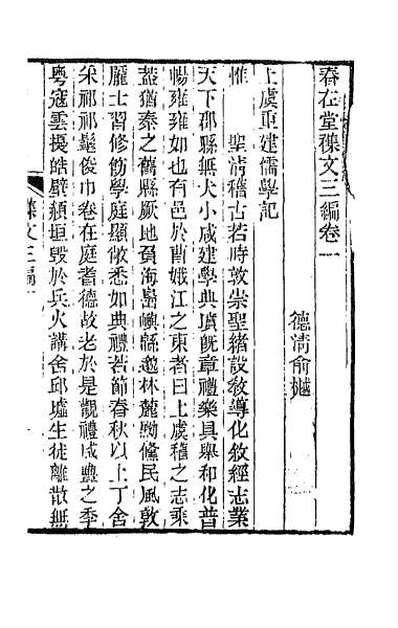 春在堂襍文三編卷一
德淸俞樾
上虞重建儒學記
惟 聖淸稽古若時敦崇聖緒設敎導化敘經志業
天下郡縣無大小咸建學典濆旣章禮樂具舉和化普
暢雍雍如也有邑於曹娥江之東者曰上虞稽之志乘
葢猶秦之舊縣厥地負海嵒嶼緜邈林麓黝儵民風敦
龐士習修飭學庭顯敞悉如典禮若節春秋以上丁舍
釆祁祁髦俊巾卷在庭耆德故老於是觀禮咸豐之季
粵寇雲擾皓壁頹垣毀於兵火講舍邱墟生徒離散無
襍文三編一